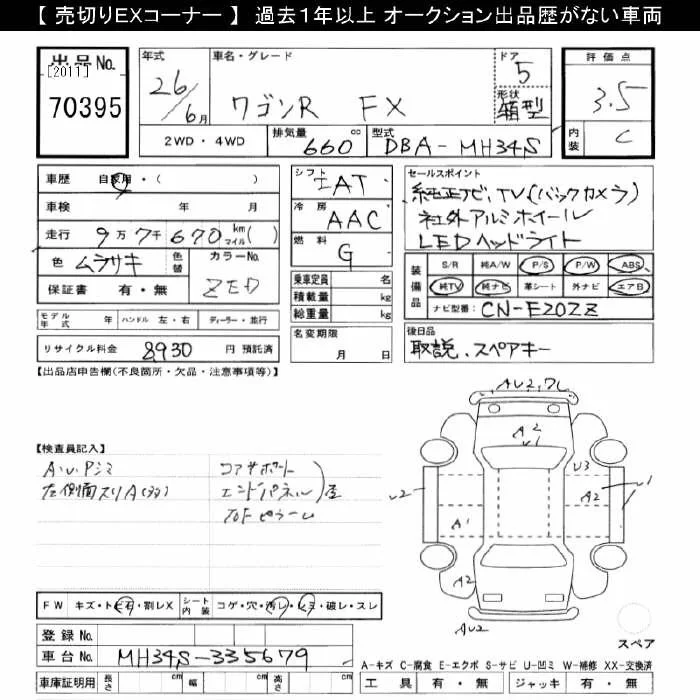 【 売切りEXコーナー 】 過去1年以上 オークション出品歴がない車両
出品No.
[2011]
70395
年式
26/6月
車名・グレード
ワゴンR FX
ドア
5
形状
箱型
評価点
3.5
内装
C
2WD・4WD
排気量
660cc
型式
DBA-MH34S
車歴 自家用・( )
車検 年 月
走行 9万7千670km マイル( )
色 ムラサキ 色替
カラーNo. ZED
保証書 有・無
シフト
IAT
冷房
AAC
燃料
G
乗車定員 名
積載量 kg
総重量 kg
セールスポイント
純正ナビ、TV、(バックカメラ)
社外アルミホイール
LEDヘッドライト
装備品
S/R 純A/W P/S P/W ABS
純TV 純ナビ 革シート 外ナビ エアB
ナビ型番 CN-E20ZZ
モデル年式 年 ハンドル 左・右 ディーラー・並行
リサイクル料金 8930 円 預託済
名変期限
月 日
後日品
取説、スペアキー
【出品店申告欄(不良箇所・欠品・注意事項等)】
【検査員記入】
A・U・Pジミ
左側面スリA(多)
コアサポート
エンドパネル
FW キズ・トビ石・割レX
シート内装 コゲ・穴・汚レ・スレ・破レ・スレ
登録No.
車台No. MH34S-335679
車庫証明用 長さ cm 幅 cm 高さ cm
AU2,フレ
A2
U1
U3
A2
U1
U2
A1
A2
AU2
スペア
A-キズ C-腐食 E-エクボ S-サビ U-凹ミ W-補修 XX-交換済
工具 有・無 ジャッキ 有・無